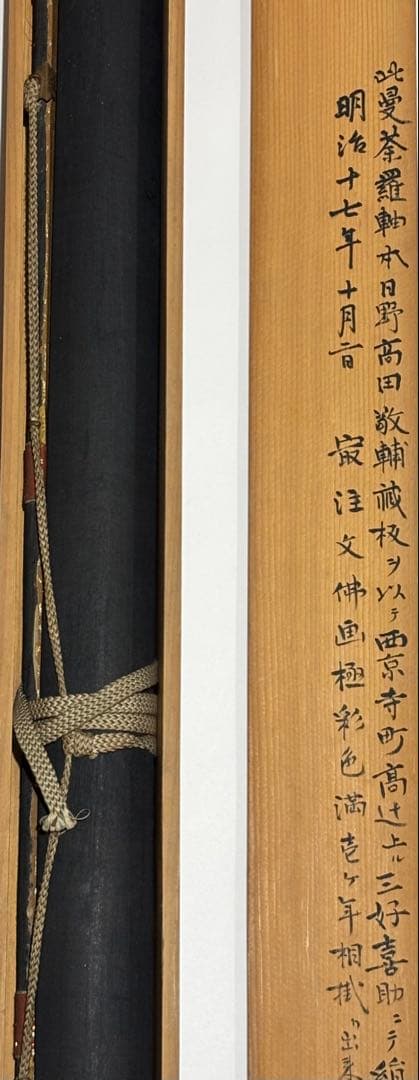 此曼荼羅軸本日野高田敬輔蔵板ヲ以テ西京寺町高辻上ル三好喜助ニテ
明治十七年十月二日 最注文佛画極彩色満壱ヶ年相掛リ出来